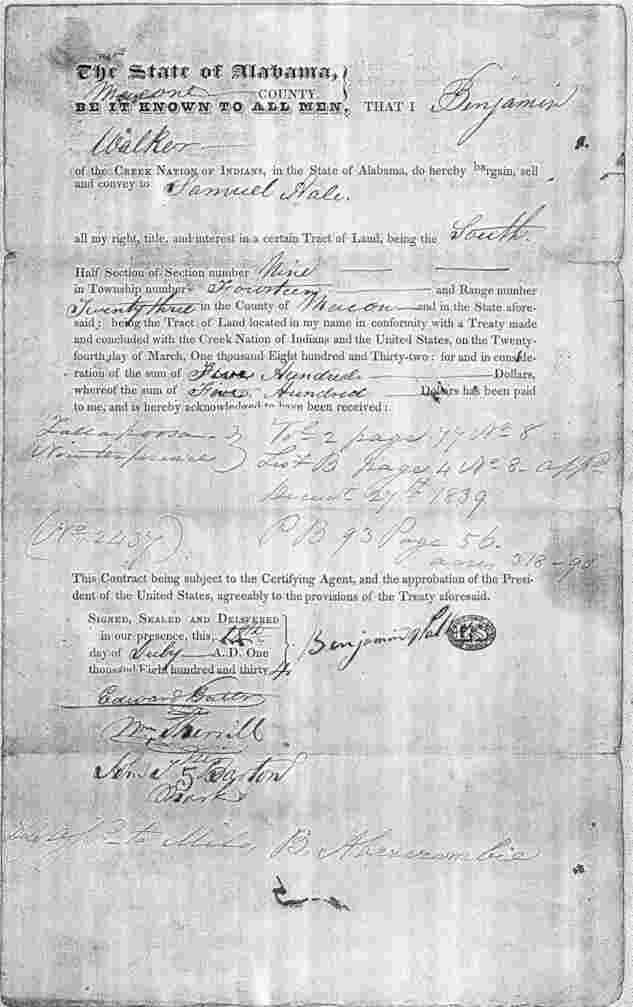 The State of Alabama,
Macon COUNTY.
BE IT KNOWN TO ALL MEN, THAT I Benjamin
Walker
of the CREEK NATION OF INDIANS, in the State of Alabama, do hereby bargain, sell
and convey to Samuel Hale.
all my right, title, and interest in a certain Tract of Land, being the South
Half Section of Section number Nine
in Township number Fourteen and Range number
Twenty three in the County of Macon and in the State afore-
said; being the Tract of Land located in my name in conformity with a Treaty made
and concluded with the Creek Nation of Indians and the United States, on the Twenty-
fourth day of March, One thousand Eight hundred and Thirty-two: for and in conside-
ration of the sum of Five Hundred Dollars,
whereof the sum of Five Hundred Dollars has been paid
to me, and is hereby acknowledged to have been received:
Tallapoosa page 77 No 8
List B page 4 No 8
27th 1839
(No. 2437) P B 93 Page 56.
acres 318-90
This Contract being subject to the Certifying Agent, and the approbation of the Presi-
dent of the United States, agreeably to the provisions of the Treaty aforesaid.
SIGNED, SEALED AND DELIVERED
in our presence, this,
day of July A. D. One
thousand Eight hundred and thirty 4
Benjamin Walker LS
Edward
Wm Therrill
Barton
Mark
to Milo B. Abercrombie